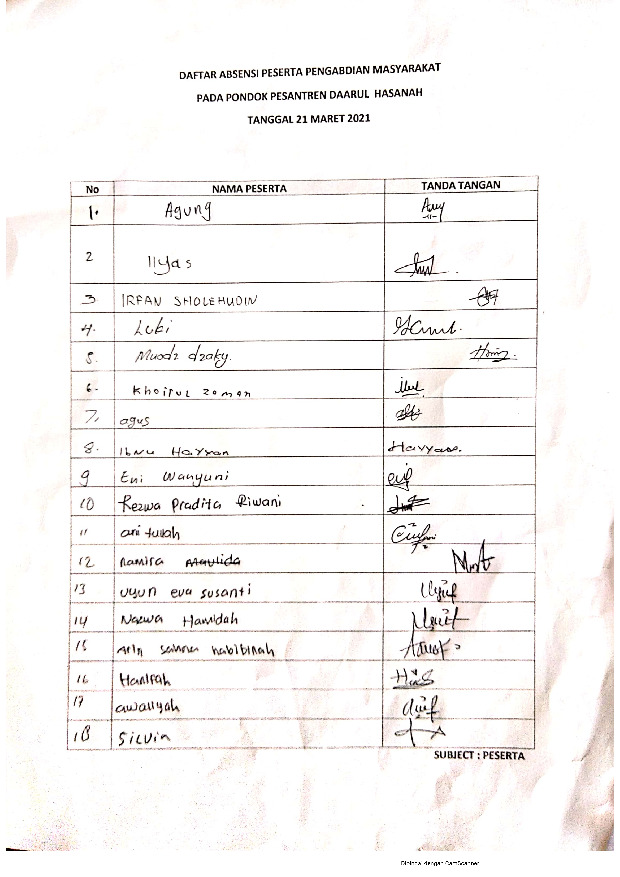 DAFTAR ABSENSI PESERTA PENGABDIAN MASYARAKAT
PADA PONDOK PESANTREN DAARUL HASANAH
TANGGAL 21 MARET 2021
No NAMA PESERTA TANDA TANGAN
1. Agung
2 Ilyas
3. IRFAN SHOLEHUDIN
4. Lubi
5. Muadz dzaky.
6. Khoirul zaman
7. agus
8. IBNU Hayyan Hayyan.
9 Eni Wahyuni
10 Rezwa Pradita Riwani
11 ani tullah
12 namira Maulida
13 uyun eva susanti
14 Nazwa Hamidah
15 habibinah
16 Hanifah
17 awaliyah
18 Silvia
SUBJECT : PESERTA
Dipindai dengan CamScanner